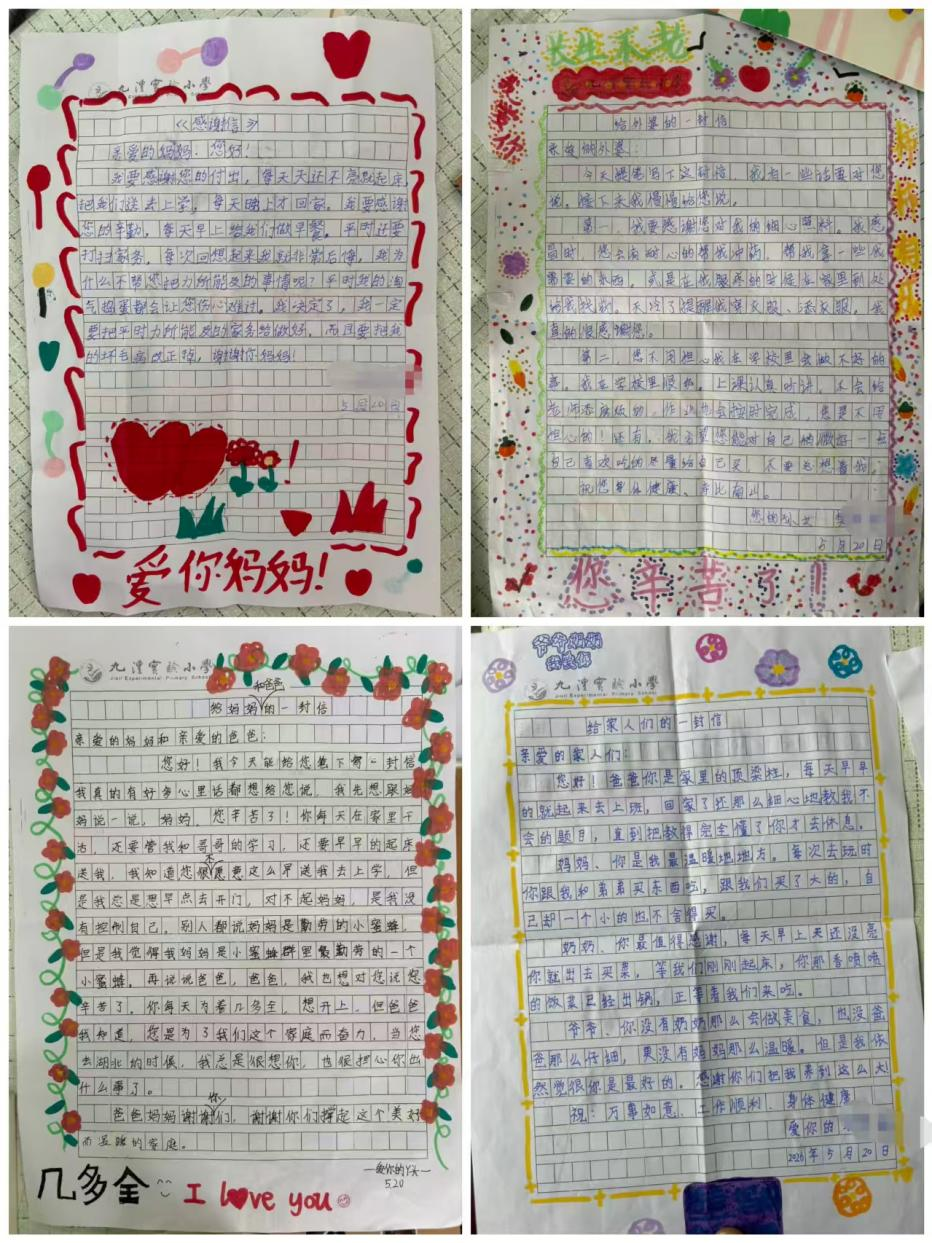 九澧实验小学
《感谢信》
亲爱的妈妈、您好！
我要感谢您的付出，每天天还不亮就起床
把我们送去上学，每天晚上才回家。我要感谢
您的辛勤，每天早上给我们做早餐。平时还要
打扫家务，每次回想起来我就非常后悔，我为
什么不替您把力所能及的事情呢？平时我的淘
气捣蛋都会让您伤心难过。我决定了，我一定
要把平时力所能及的家务给做好，而且要把我
的坏毛病改正掉，谢谢你妈妈！
5月20日
爱你妈妈！
长生不老
给外婆的一封信
亲爱的外婆：
今天提笔写下这封信，我有一些话要对您
说，接下来我慢慢给您说。
第一，我要感谢您对我的细心照料。我感
冒时，您会耐心的帮我冲药，帮我拿一些我
需要的东西，或是在我服
给我找
天冷了提醒我穿衣服、添衣服，我
真的很感谢您。
第二，您不用担心我在学校里会做不好的
事。我在学校里很好，上课认真听讲，不会给
老师添麻烦的，作业也会按时完成，您要不用
担心的！还有，我希望您能对自己的微好一点
自己喜欢吃的尽量给自己买，不要总想着我。
祝您身体健康、寿比南山。
5月20日
您辛苦了！
九澧实验小学
Jiuli Experimental Primary School
给妈妈和爸爸的一封信
亲爱的妈妈和亲爱的爸爸：
您好！我今天能给您爸下写一封信
我真的有好多心里话都想给您说，我先想跟妈
妈说一说，妈妈，您辛苦了！你每天在家里干
活，还要管我和哥哥的学习，还要早早的起床
送我，我知道您很不愿意这么早送我去上学，但
是我总是想早点去开门，对不起妈妈，是我没
有控制自己，别人都说妈妈是勤劳的小蜜蜂，
但是我觉得我妈妈是小蜜蜂群里最勤劳的一个
小蜜蜂。再说说爸爸，爸爸，我也想对您说您
辛苦了。你每天为着几多全 想开上，但爸爸
我知道，您是为了我们这个家庭而奋力，当您
去湖北的时候，我总是很想你，也很担心你出
什么事了。
爸爸妈妈谢谢你们，谢谢你们撑起这个美好
而温暖的家庭。
—爱你的丫头—
5.20
几多全
I love you
爷爷奶奶
九澧实验小学
Jiuli Experimental Primary School
给家人们的一封信
亲爱的家人们：
您好！爸爸你是家里的顶梁柱，每天早早
的就起来去上班，回家了还那么细心地教我不
会的题目，直到把教得完全懂了你才去休息。
妈妈、你是我最温暖地地方。每次去玩时
你跟我和弟弟买东西吃，跟我们买了大的，自
己却一个小的也不舍得买。
奶奶、你最值得感谢，每天早上天还没亮
你就出去买菜，等我们刚刚起床，你那香喷喷
的饭菜已经出锅，正等着我们来吃。
爷爷、你没有奶奶那么会做美食，也没爸
爸那么仔细，更没有妈妈那么温暖。但是我依
然觉很你是最好的。感谢你们把我养到这么大！
祝：万事如意、工作顺利、身体健康
爱你的
2026年5月20日